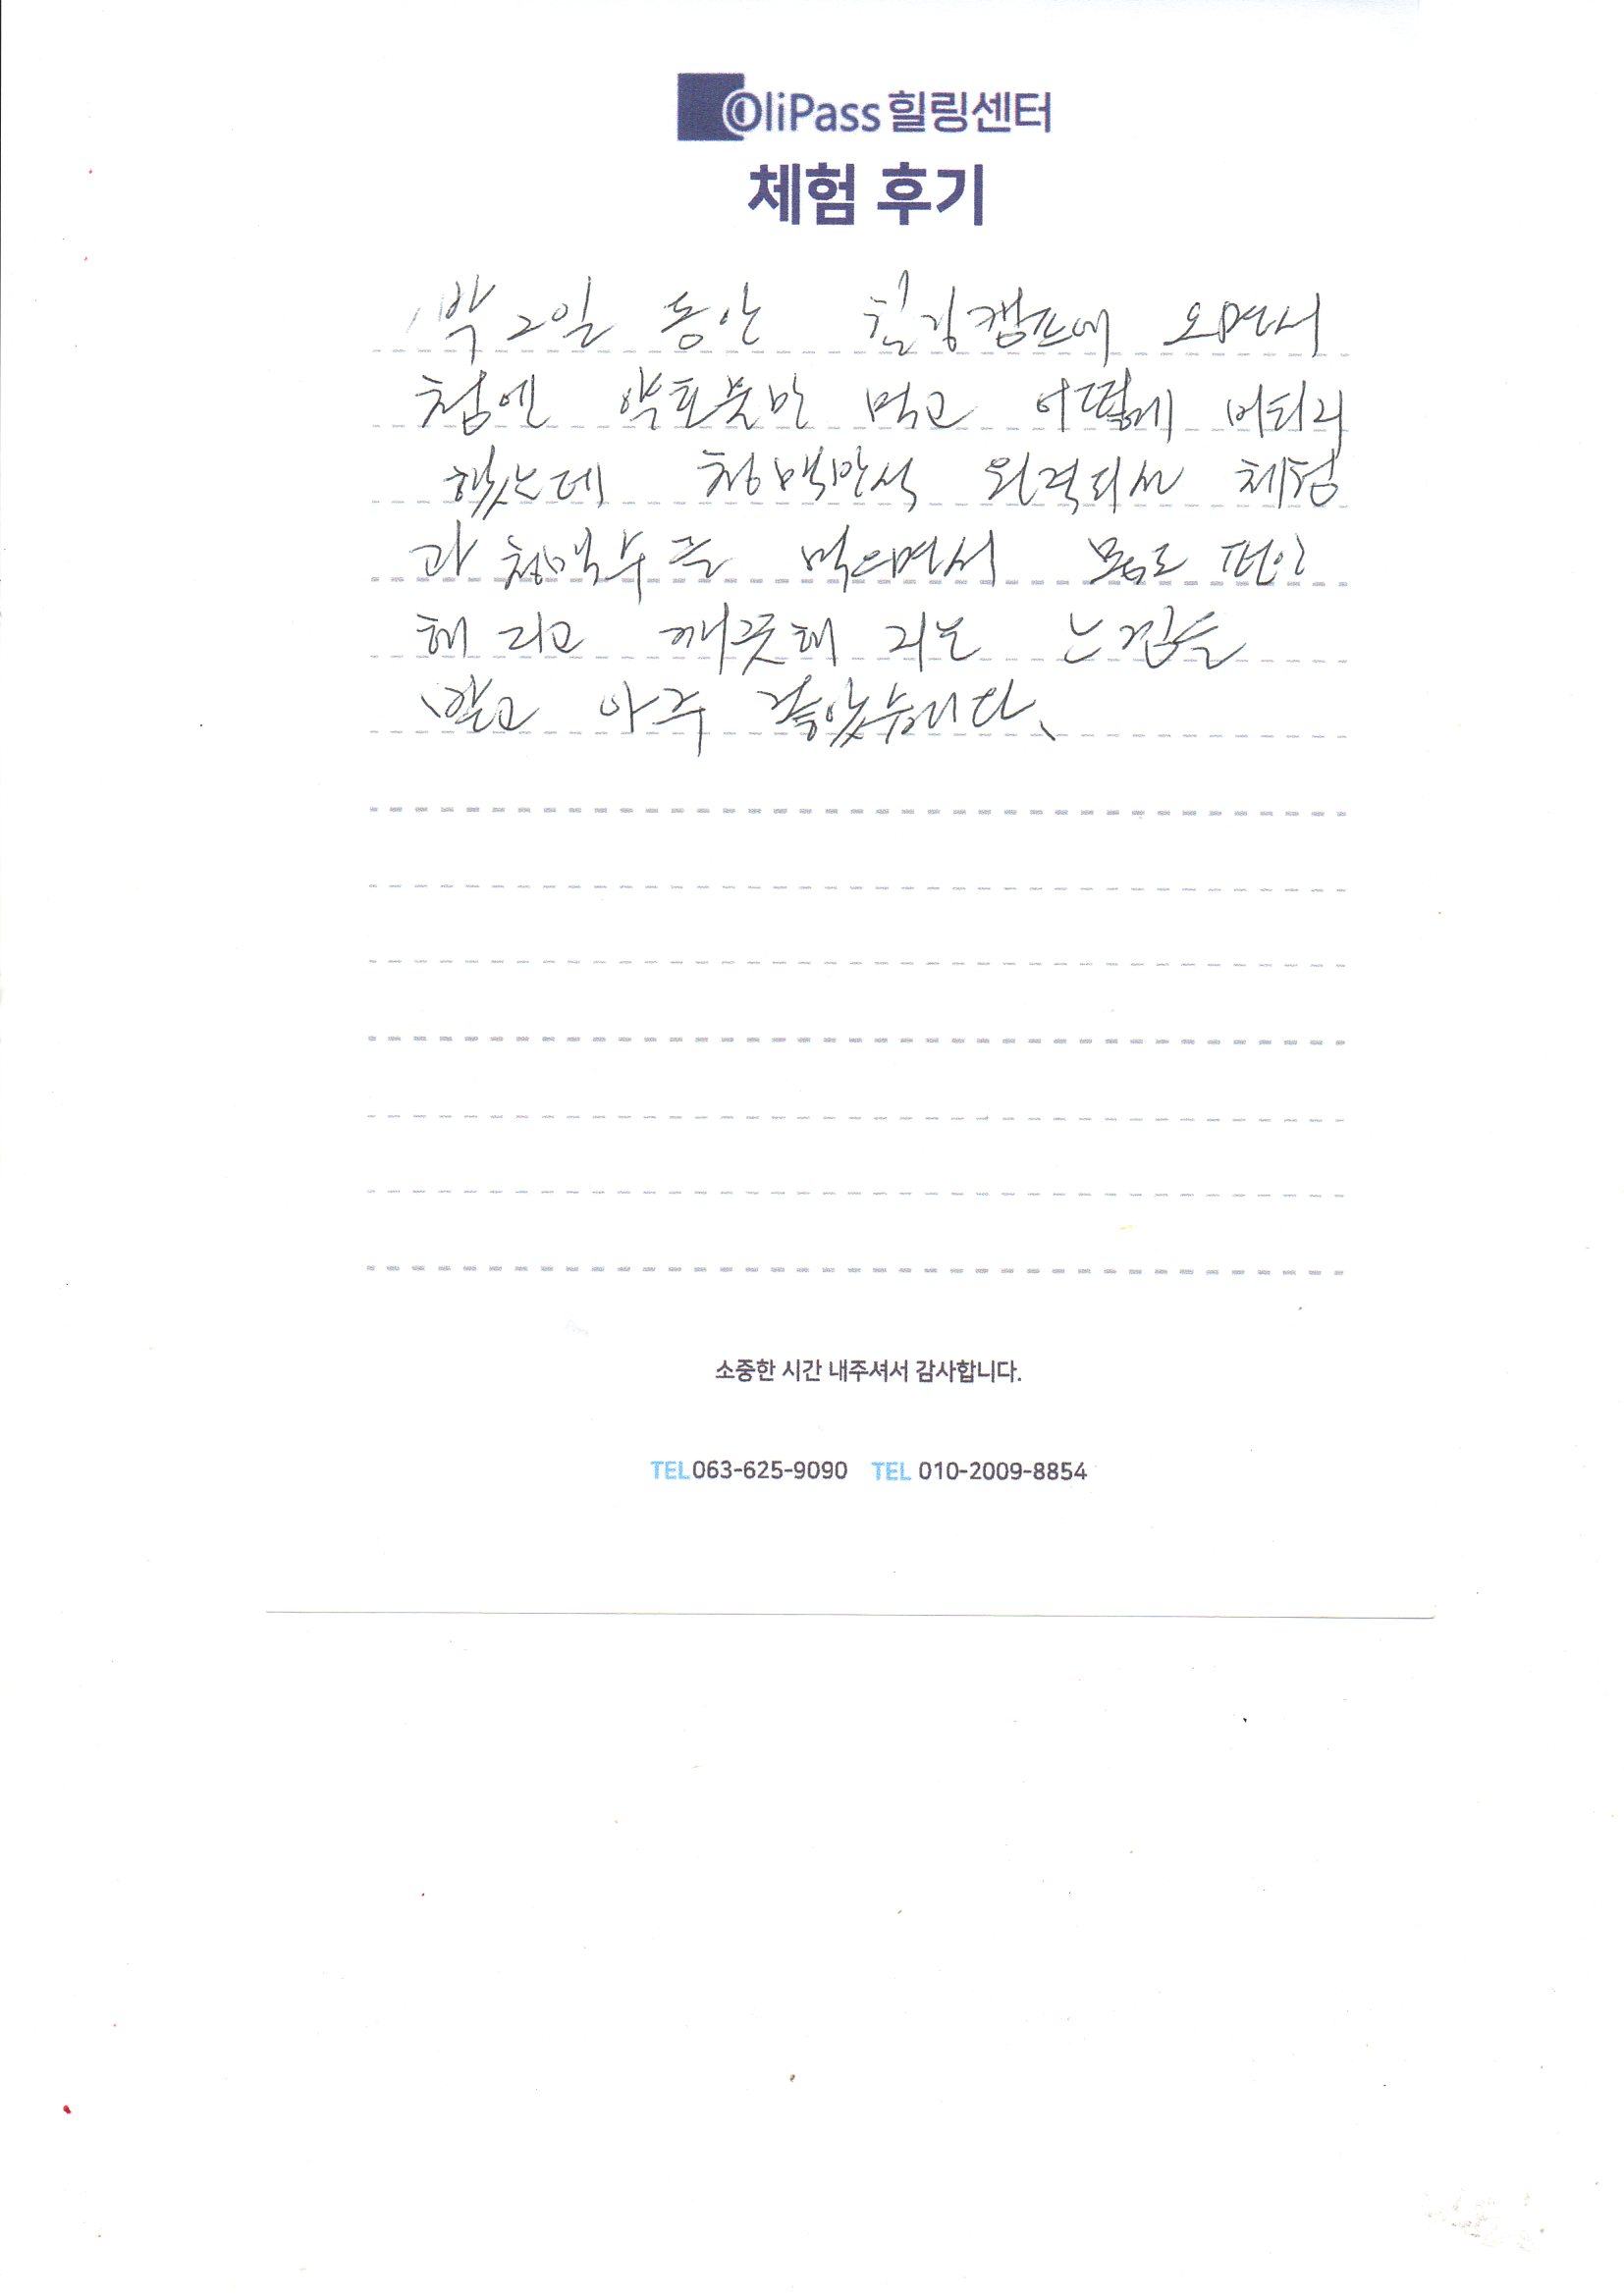 OliPass 힐링센터
체험 후기
1박 2일 동안 힐링캠프에 오면서
첨엔 약초물만 먹고 어떻게 버티리
했는데 청맥안석 원적외선 체험
과 청맥수를 먹으면서 몸도 편안
해 지고 깨끗해 지는 느낌을
받고 아주 좋았습니다.
소중한 시간 내주셔서 감사합니다.
TEL 063-625-9090 TEL 010-2009-8854